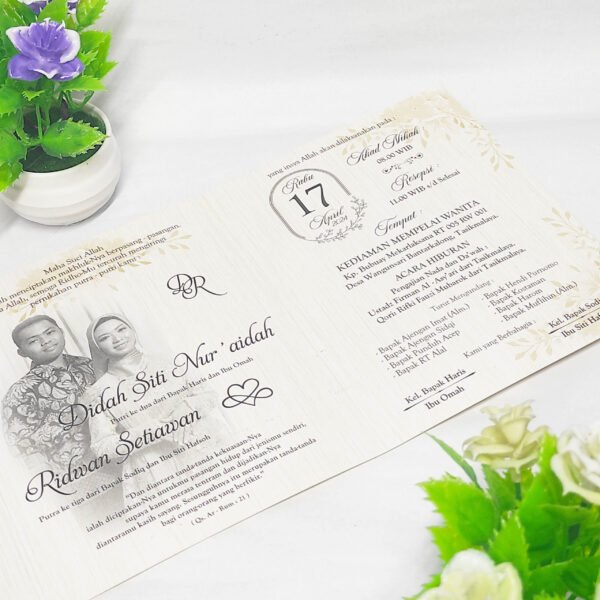 Maha Suci Allah
menciptakan makhluk-Nya berpasang - pasangan.
Allah, semoga Ridho-Mu tercurah mengiringi
pernikahan putra - putri kami :
D&R
Didah Siti Nur' aidah
Putri ke dua dari Bapak Haris dan Ibu Omah
Ridwan Setiawan
Putra ke tiga dari Bapak Sodiq dan Ibu Siti Hafsoh
"Dan diantara tanda-tanda kekuasaan-Nya
ialah diciptakan-Nya untukmu pasangan hidup dari jenismu sendiri,
supaya kamu merasa tentram dan dijadikan-Nya
diantaramu kasih sayang. Sesungguhnya itu merupakan tanda-tanda
bagi orang-orang yang berfikir."
( Qs. Ar - Rum : 21 )
yang insya Allah akan dilaksanakan pada :
Rabu
17
April
2024
Akad Nikah
08.00 WIB
Resepsi :
11.00 WIB s/d Selesai
Tempat :
KEDIAMAN MEMPELAI WANITA
Kp. Bubuay Mekarlaksana RT 003 RW 001
Desa Wangunsari Bantarkalong, Tasikmalaya.
ACARA HIBURAN
Pengajian Nada dan Da'wah :
Ustadz Firman Al - Aw'ari dari Tasikmalaya.
Qori Rifki Fauzi Mubarok dari Tasikmalaya.
Turut Mengundang :
- Bapak Ajengan Imat (Alm.)
- Bapak Ajengan Sidqi
- Bapak Punduh Acep
- Bapak RT Alal
- Bapak Hendi Purnomo
- Bapak Kostaman
- Bapak Hunan
- Bapak Muflihin (Alm.)
Kami yang Berbahagia
Kel. Bapak Haris
Ibu Omah
Kel. Bapak
Ibu Siti